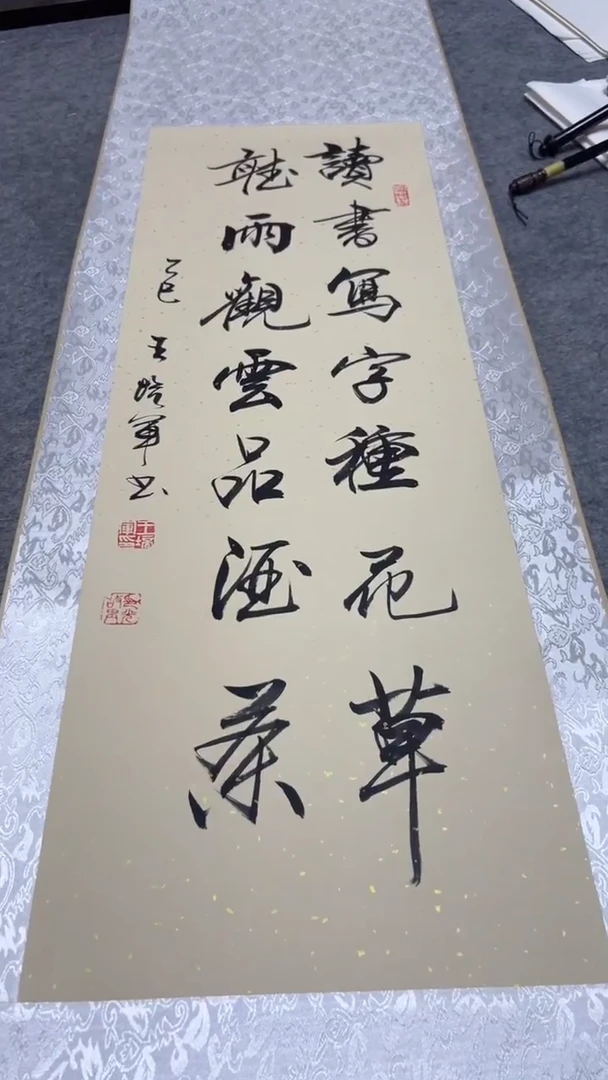 讀書寫字種花草
聽雨觀雲品酒茶
乙巳 王培軍書